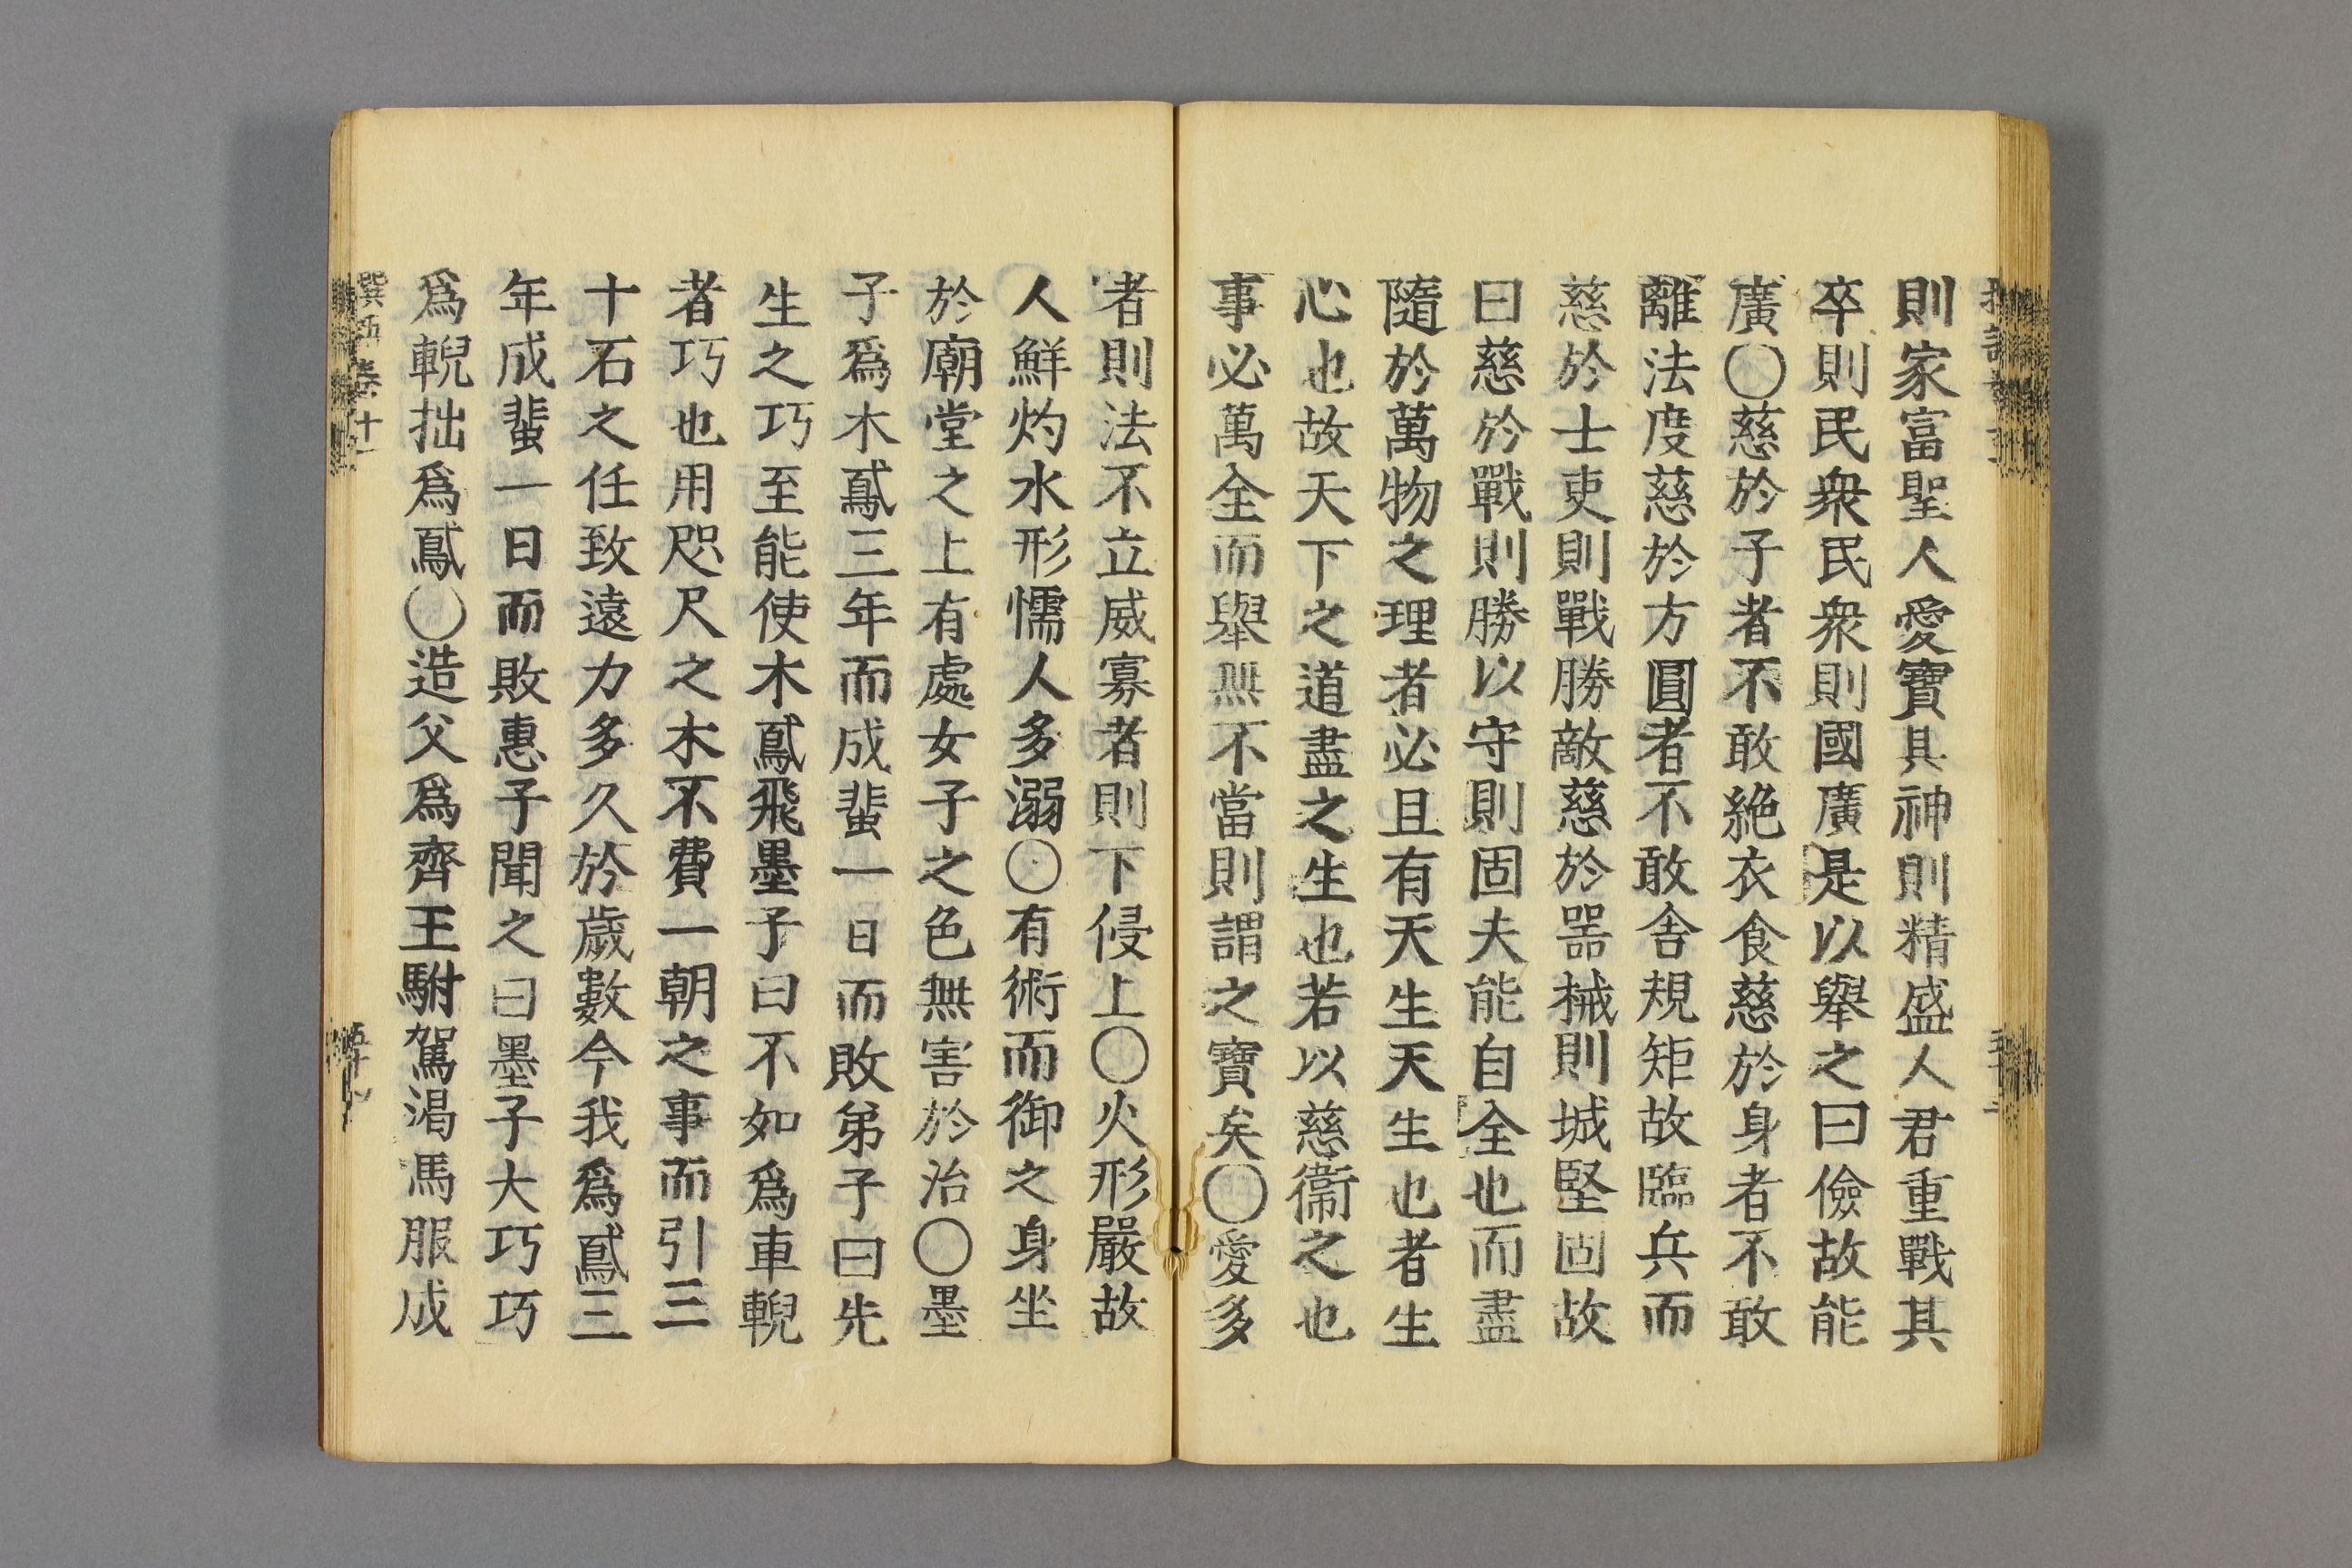 則家富聖人愛寶具神則精盛人君重戰其
卒則民衆民衆則國廣是以舉之曰儉故能
廣〇慈於子者不敢絶衣食慈於身者不敢
離法度慈於方圓者不敢舍規矩故臨兵而
慈於士吏則戰勝敵慈於器械則城堅固故
曰慈於戰則勝以守則固夫能自全也而盡
隨於萬物之理者必且有天生天生也者生
心也故天下之道盡之生也若以慈衞之也
事必萬全而舉無不當則謂之寶矣〇愛多
者則法不立威寡者則下侵上〇火形嚴故
人鮮灼水形懦人多溺〇有術而御之身坐
於廟堂之上有處女子之色無害於治〇墨
子爲木鳶三年而成蜚一日而敗弟子曰先
生之巧至能使木鳶飛墨子曰不如爲車輗
者巧也用咫尺之木不費一朝之事而引三
十石之任致遠力多久於歲數今我爲鳶三
年成蜚一日而敗惠子聞之曰墨子大巧巧
爲輗拙爲鳶〇造父爲齊王駙駕渴馬服成
卷十一